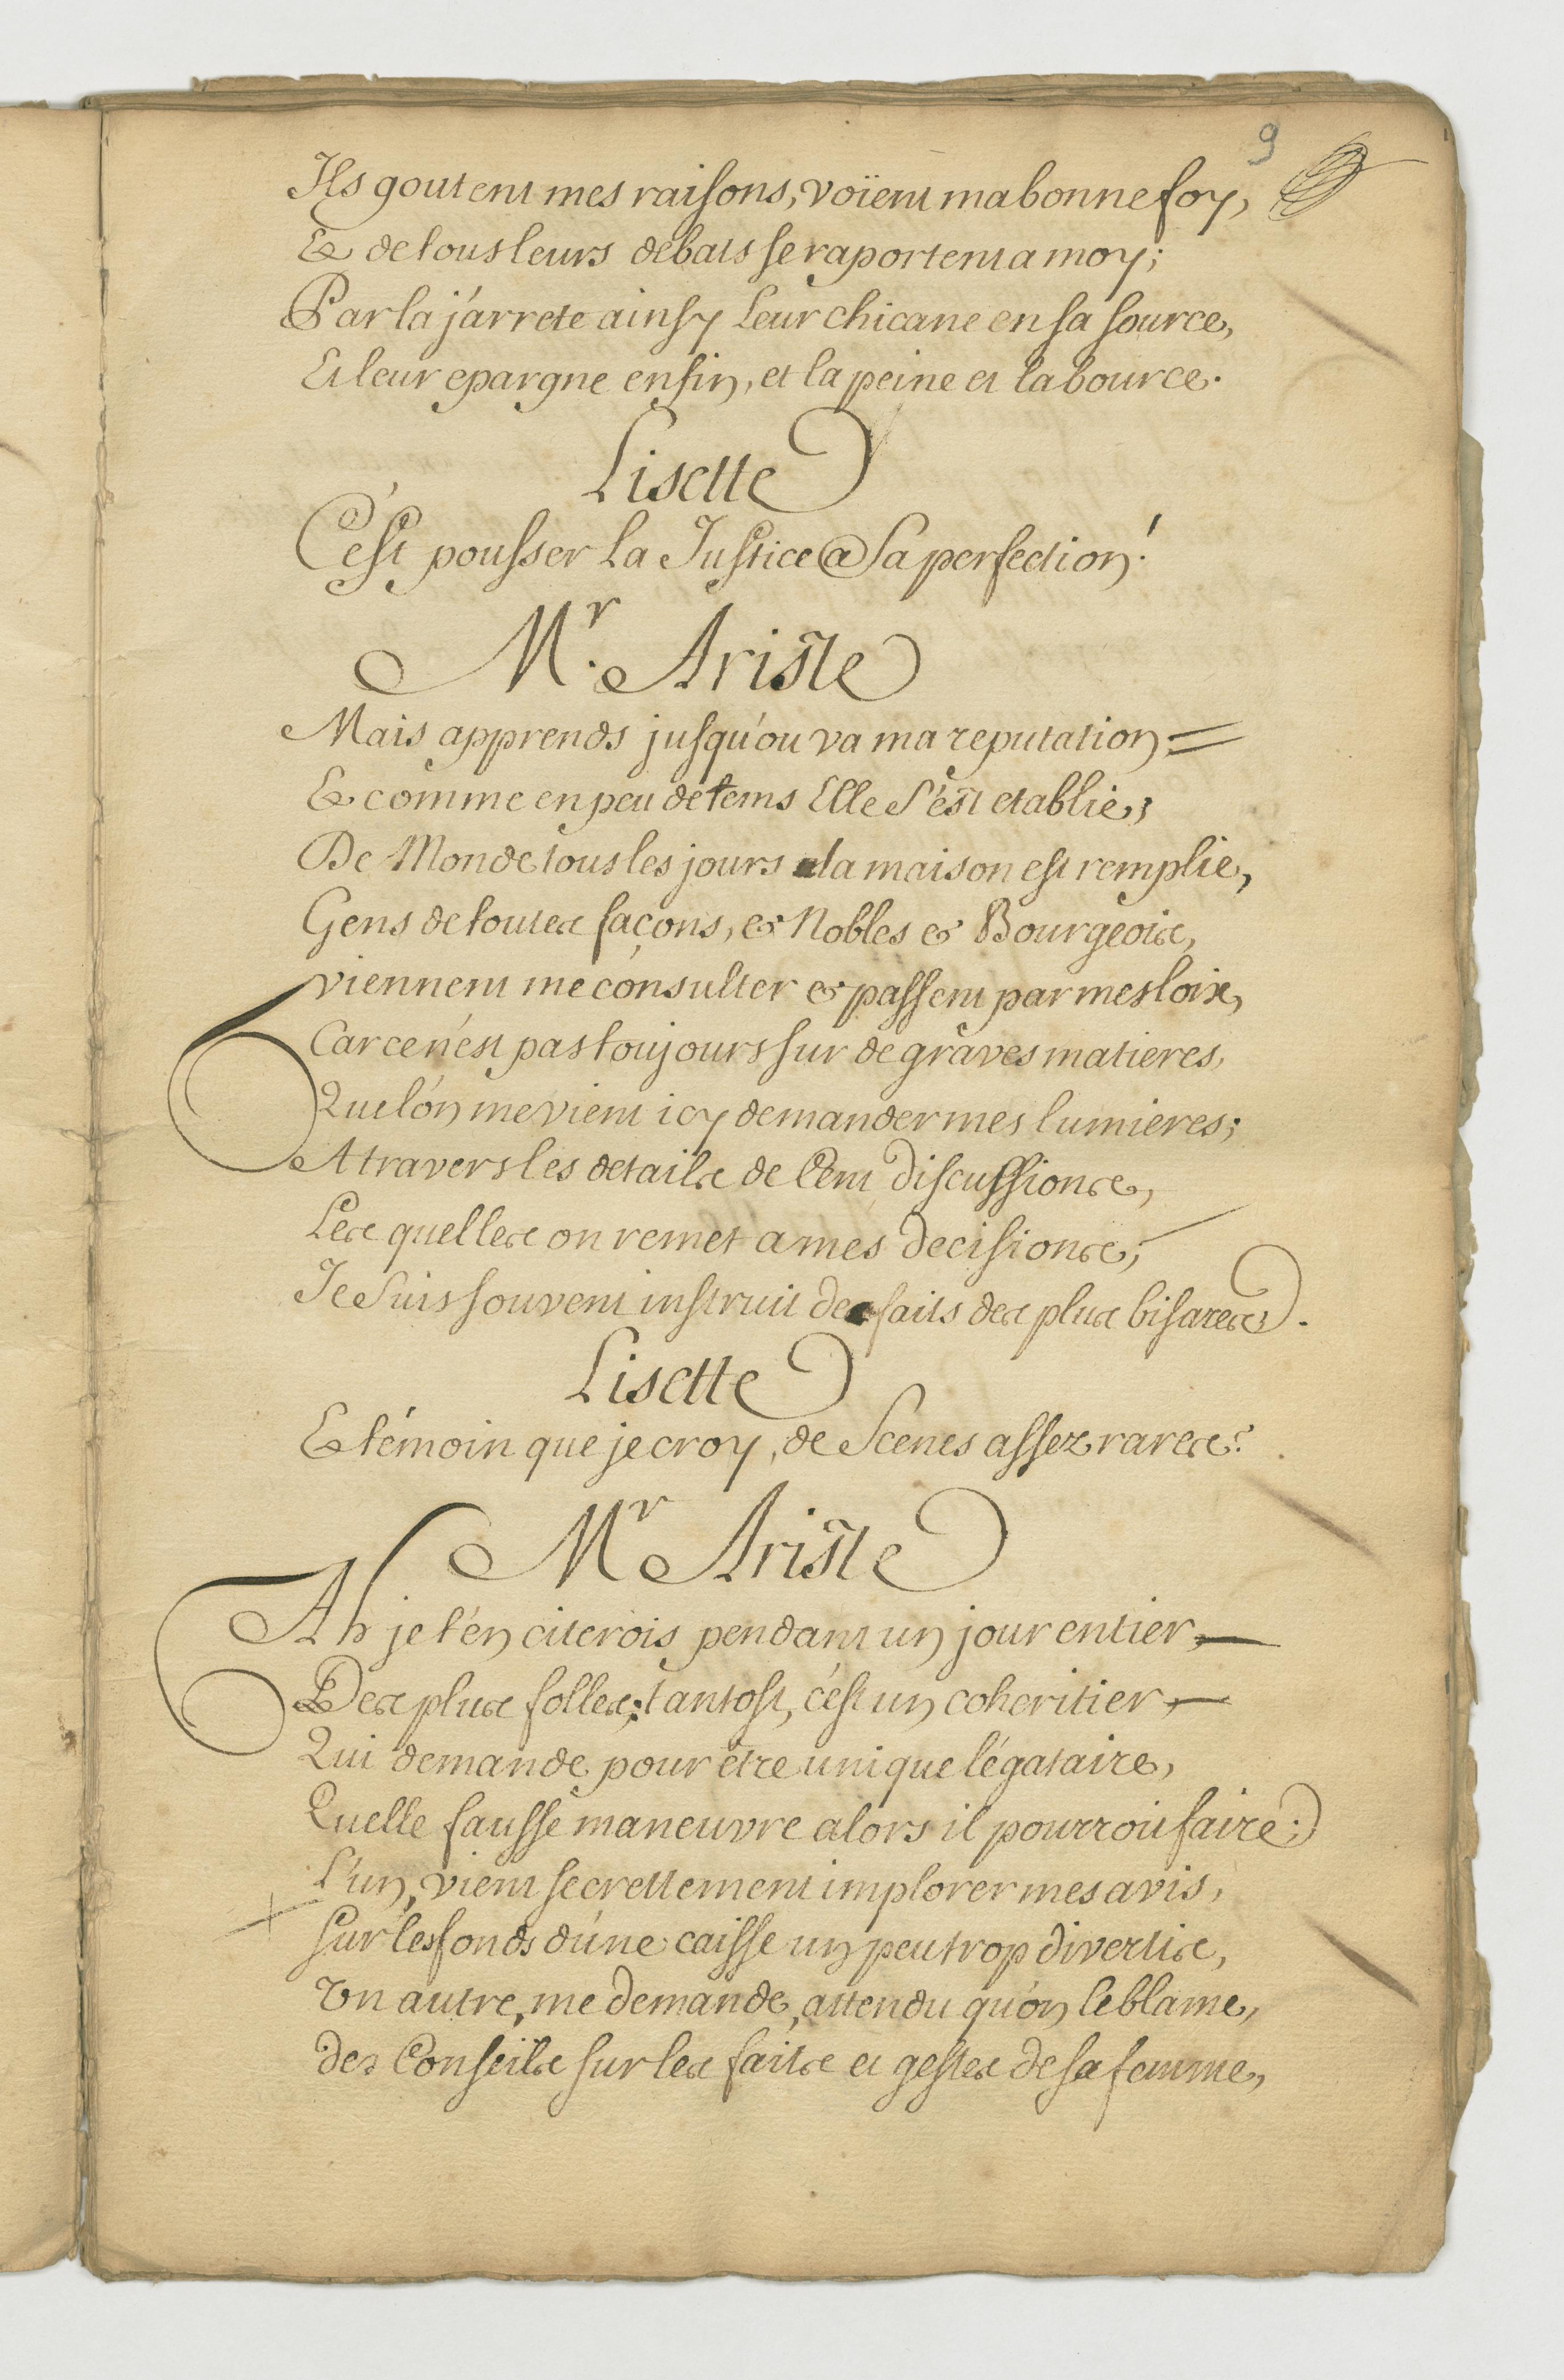 9
Ils goutent mes raisons, voïent ma bonne foy,
Et de tous leurs debats se raportent a moy;
Par la j'arrete ainsy Leur chicane en sa source,
Et leur epargne enfin, et la peine et la bource.
Lisette
C'est pousser La Justice a Sa perfection!
Mr. Ariste
Mais apprends jusqu'ou va ma reputation
Et comme en peu de tems Elle S'est etablie;
De Monde tous les jours la maison est remplie,
Gens de toutes façons, & Nobles & Bourgeois,
viennent me consulter & passent par mes loix,
Car ce n'est pas toujours sur de gràves matieres,
Que l'on me vient icy demander mes lumieres;
A travers les details de Cent discussions,
Les quelles on remet a mes decisions;
Je Suis souvent instruit de faits des plus bisares.
Lisette
Et témoin que je croy, de Scenes assez rares?
Mr Ariste
Ah je t'en citerois pendant un jour entier,
Des plus folles; tantost, c'est un coheritier
Qui demande pour être unique légataire,
Quelle fausse maneuvre alors il pourroit faire;
L'un, vient secrettement implorer mes avis,
Sur les fonds d'une caisse un peu trop divertis,
Un autre, me demande, attendu qu'on le blame,
des Conseils sur les faits et gestes de sa femme,